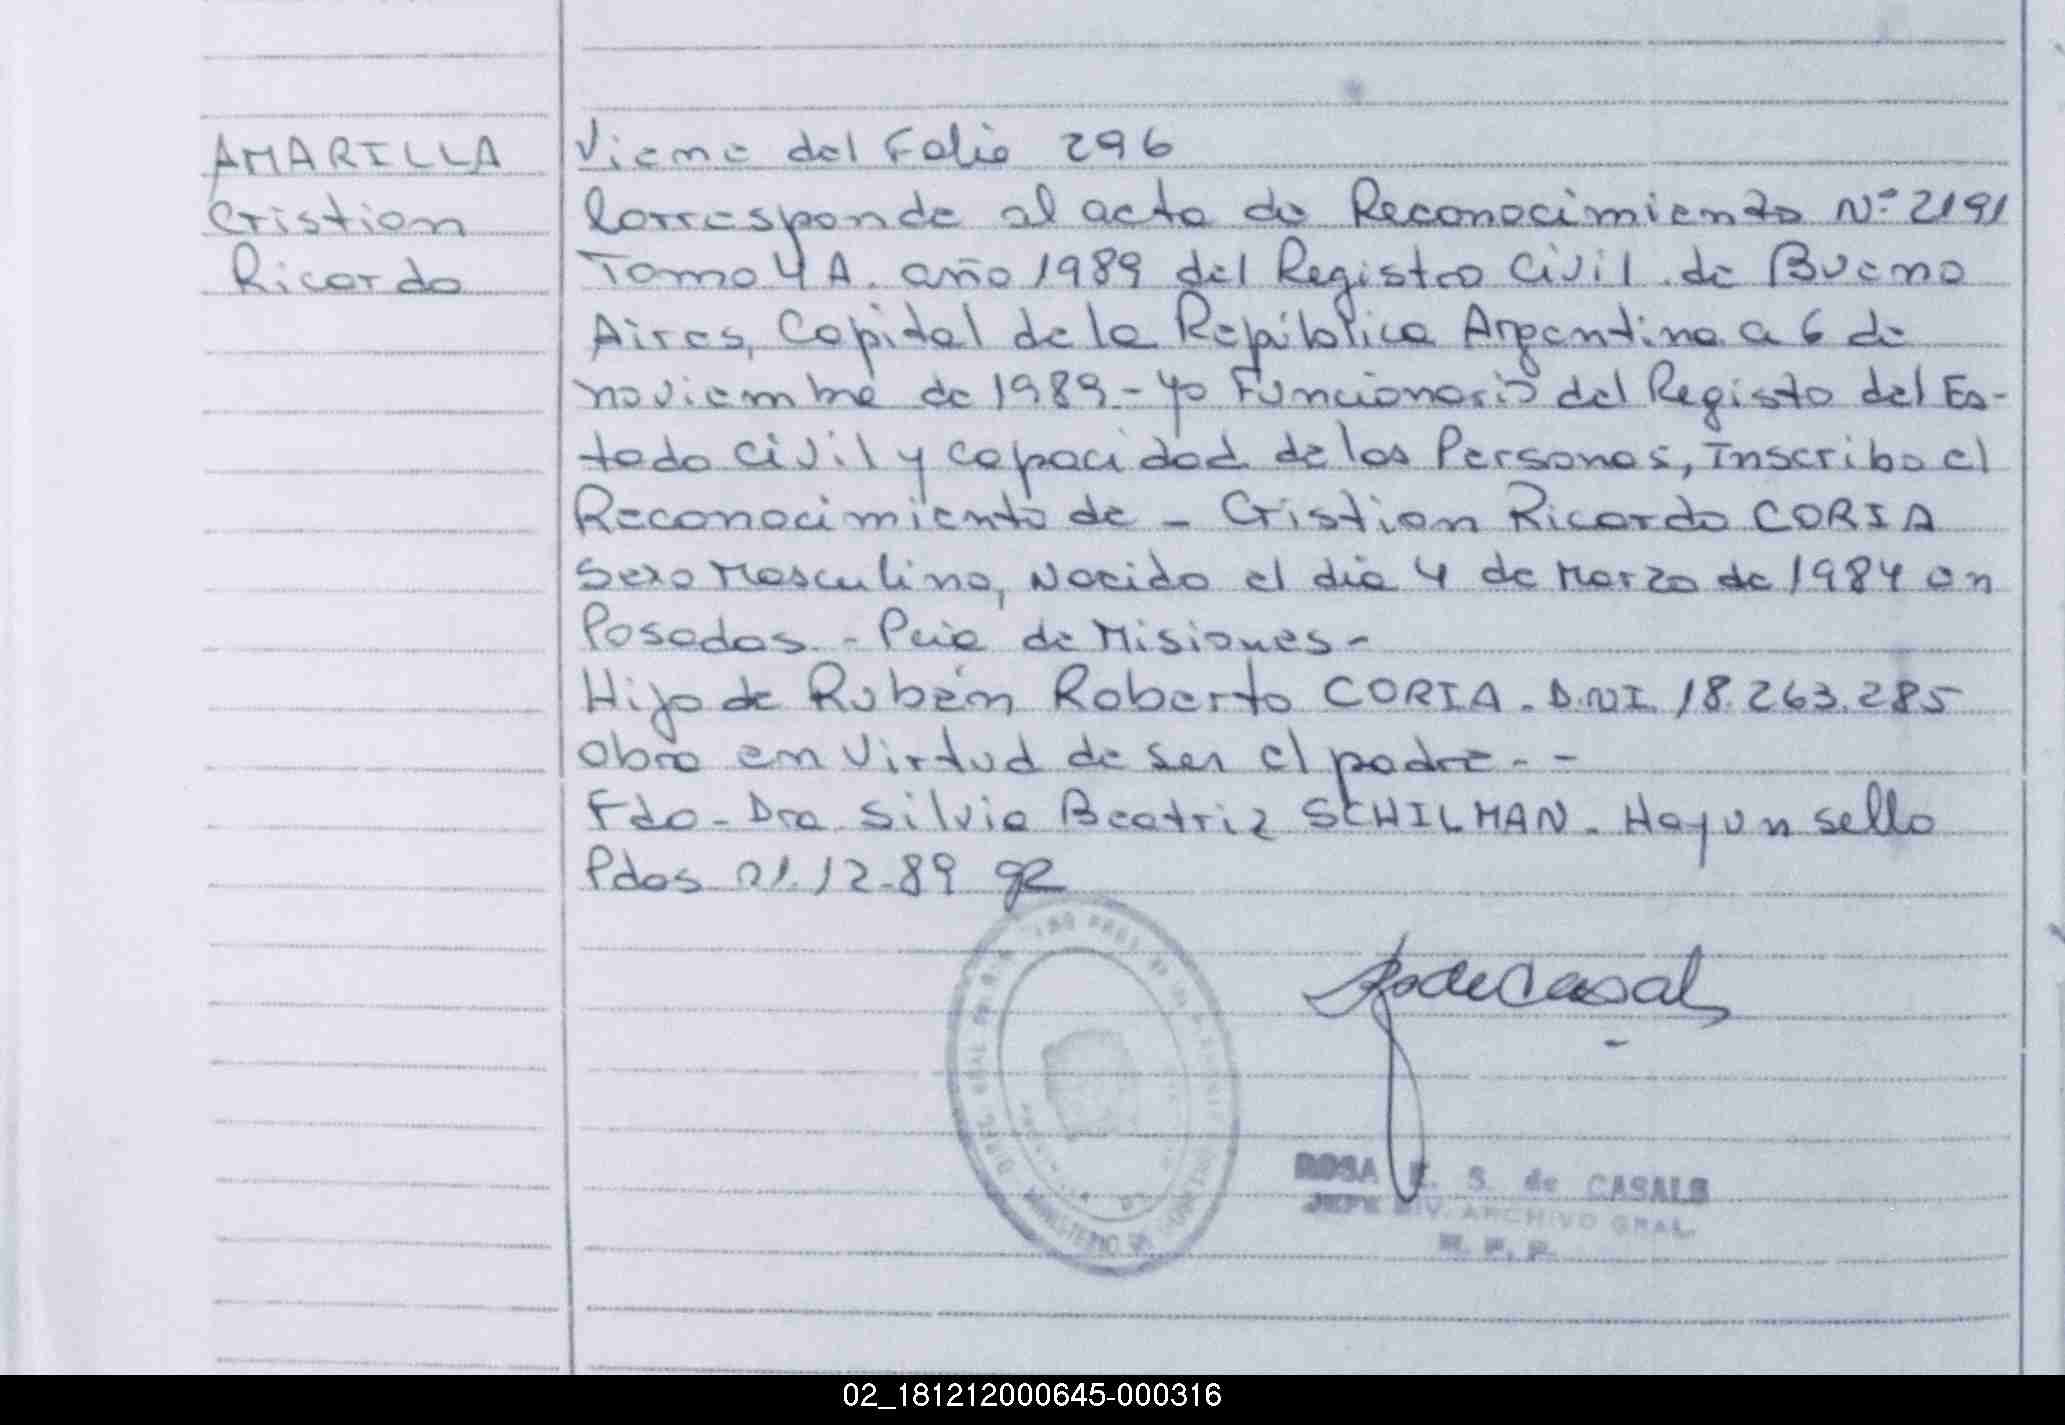 AMARILLA
Cristian
Ricardo
Viene del Folio 296
Corresponde al acta de Reconocimiento Nº 2191
Tomo 4 A. año 1989 del Registro Civil de Bueno
Aires, Capital de la República Argentina a 6 de
noviembre de 1989.- yo Funcionario del Registo del Es-
tado Civil y capacidad de las Personas, Inscribo el
Reconocimiento de - Cristian Ricardo CORIA
Sexo Masculino, Nacido el dia 4 de Marzo de 1984 en
Posadas - Pcia de Misiones -
Hijo de Rubén Roberto CORIA. D.N.I. 18.263.285
Obra en virtud de ser el padre - -
Fdo - Dra Silvia Beatriz SCHILMAN. Hay un sello
Pdas 21.12-89
MINISTERIO DE
ROSA E. S. de CASALS
JEFE DIV. ARCHIVO GRAL.
R. P. P.
02_181212000645-000316